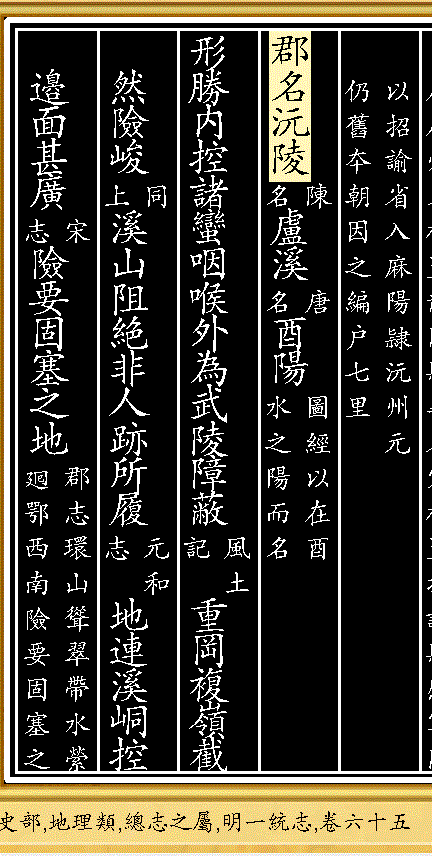 以招諭省入麻陽隷沅州元
仍舊夲朝因之編户七里
郡名沅陵陳名盧溪唐名酉陽圖經以在酉水之陽而名
形勝内控諸蠻咽喉外為武陵障蔽風土記重岡複嶺截
然險峻同上溪山阻絶非人跡所履元和志地連溪峒控
邊面甚廣宋志險要固塞之地郡志環山聳翠帶水縈廻鄂西南險要固塞之
史部,地理類,總志之屬,明一統志,卷六十五